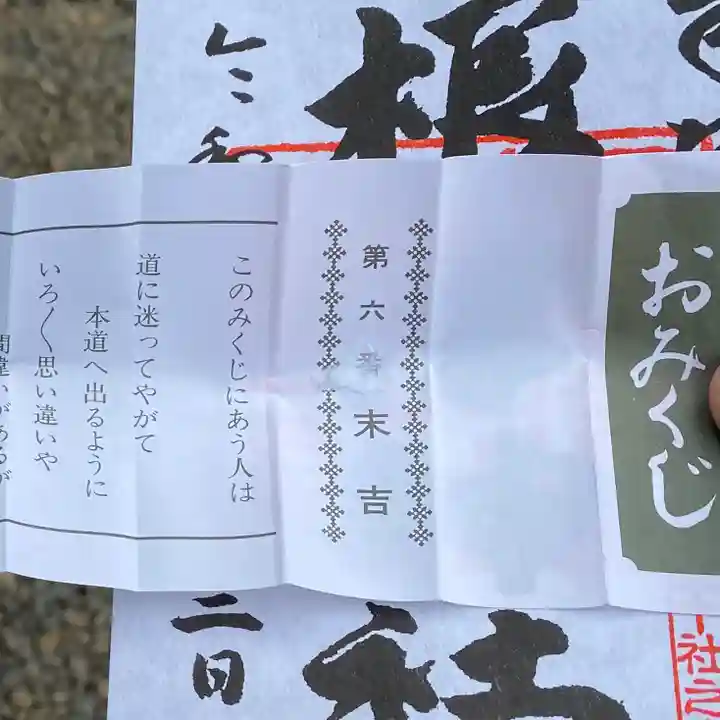 おみくじ
第六番 末吉
このみくじにあう人は
道に迷ってやがて
本道へ出るように
いろ〱思い違いや
間違いがあるが
令和
二日
社